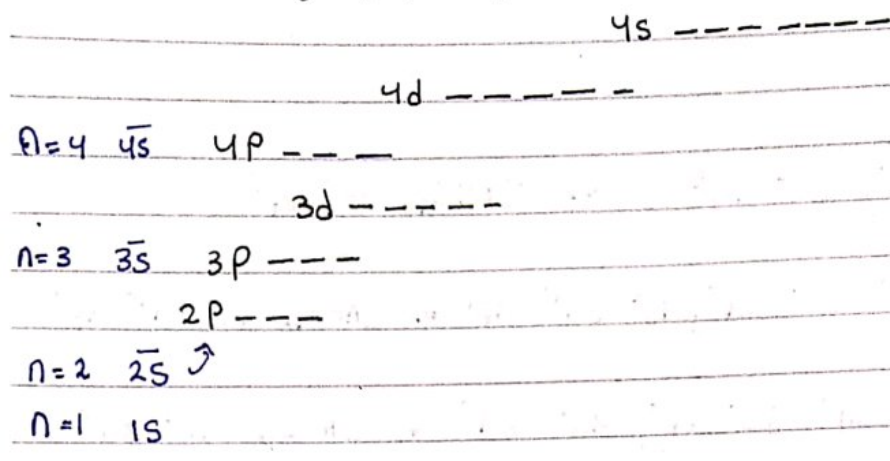 4s — — — — — — —
4d — — — — —
n=4 4s 4p — — —
3d — — — — —
n=3 3s 3p — — —
2p — — —
n=2 2s
n=1 1s